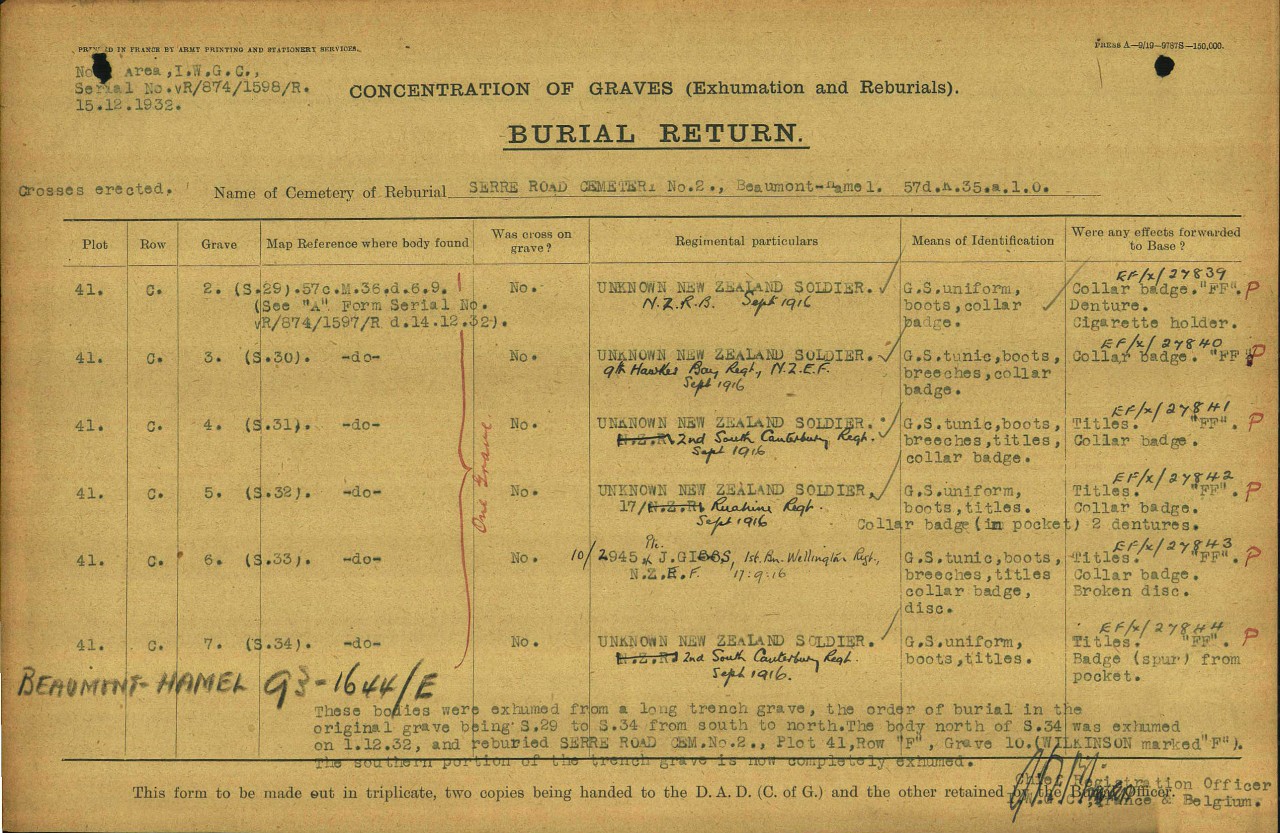 PRINTED IN FRANCE BY ARMY PRINTING AND STATIONERY SERVICES.
PRESS A—9/19—9787S—150,000.
Area, I.W.G.C.,
Serial No. VR/874/1598/R.
15.12.1932.
CONCENTRATION OF GRAVES (Exhumation and Reburials).
BURIAL RETURN.
Crosses erected. Name of Cemetery of Reburial SERRE ROAD CEMETERY No.2., Beaumont-Hamel. 57d.K.35.a.1.0.
Plot Row Grave Map Reference where body found Was cross on grave? Regimental particulars Means of Identification Were any effects forwarded to Base?
EF/x/27839
41. C. 2. (S.29).57c.M.36.d.6.9. No. UNKNOWN NEW ZEALAND SOLDIER. G.S.uniform, Collar badge."FF". P
(See "A" Form Serial No. N.Z.R.B. Sept 1916 boots, collar Denture.
VR/874/1597/R d.14.12.32). badge. Cigarette holder.
EF/x/27840
41. C. 3. (S.30). -do- No. UNKNOWN NEW ZEALAND SOLDIER. G.S.tunic,boots, Collar badge. "FF". P
9th Hawkes Bay Regt, N.Z.E.F. breeches,collar
Sept 1916 badge.
EF/x/27841
41. C. 4. (S.31). -do- No. UNKNOWN NEW ZEALAND SOLDIER. G.S.tunic,boots, Titles. "FF". P
N.Z.R. 2nd South Canterbury Regt. breeches,titles, Collar badge.
Sept 1916 collar badge.
One Grave
EF/x/27842
41. C. 5. (S.32). -do- No. UNKNOWN NEW ZEALAND SOLDIER, G.S.uniform, Titles. "FF". P
17/N.Z.R. Ruahine Regt. boots,titles. Collar badge.
Sept 1916 Collar badge (in pocket) 2 dentures.
EF/x/27843
41. C. 6. (S.33). -do- No. 10/2945 Pte. J.GIBBS, 1st. Bn. Wellington Regt., G.S.tunic,boots, Titles. "FF". P
N.Z.E.F. 17.9.16 breeches,titles Collar badge.
collar badge, Broken disc.
disc.
EF/x/27844
41. C. 7. (S.34). -do- No. UNKNOWN NEW ZEALAND SOLDIER. G.S.uniform, Titles. "FF". P
N.Z.R. 2nd South Canterbury Regt. boots,titles. Badge (spur) from
Sept 1916. pocket.
BEAUMONT-HAMEL 93-1644/E
These bodies were exhumed from a long trench grave, the order of burial in the
original grave being S.29 to S.34 from south to north.The body north of S.34 was exhumed
on 1.12.32, and reburied SERRE ROAD CEM.No.2., Plot 41,Row "F", Grave 10.(WILKINSON marked"F").
The southern portion of the trench grave is now completely exhumed.
Chief Registration Officer
This form to be made out in triplicate, two copies being handed to the D.A.D. (C. of G.) and the other retained by the Burial Officer.
I.W.G.C., France & Belgium.